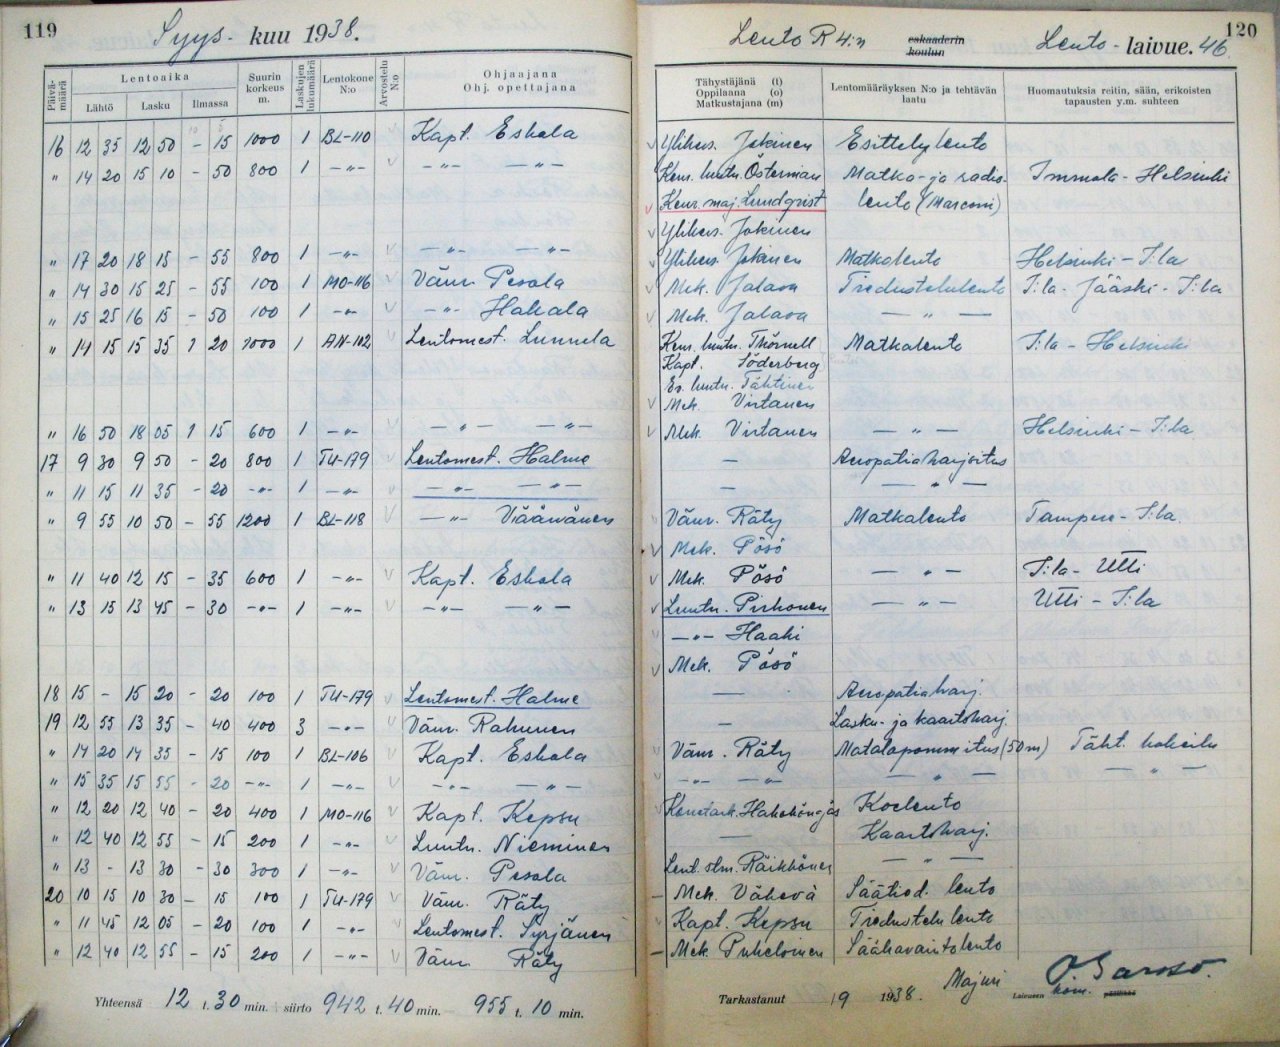 119 Syys- kuu 1938.
Lento R 4:n eskaaderin koulun Lento- laivue. 46 120
Päivämäärä Lentoaika Suurin korkeus m. Laskujen lukumäärä Lentokone N:o Arvostelu N:o Ohjaajana Ohj. opettajana Tähystäjänä (t) Oppilaana (o) Matkustajana (m) Lentomääräyksen N:o ja tehtävän laatu Huomautuksia reitin, sään, erikoisten tapausten y.m. suhteen
Lähtö Lasku Ilmassa
16 12 35 12 50 - 15 1000 1 BL-110 Kapt. Eskola Ylikers. Jokinen Esittelylento
" 14 20 15 10 - 50 800 1 -"- -"- -"- Kenr. luutn. Österman Matka- ja radio- Immola - Helsinki
Kenr. maj. Lundqvist lento (Marconi)
Ylikers. Jokinen
" 17 20 18 15 - 55 800 1 -"- -"- -"- Ylikers. Jokinen Matkalento Helsinki - I:la
" 14 30 15 25 - 55 100 1 MO-116 Vänr. Pesola Mek. Jalava Tiedustelulento I:la - Jääski - I:la
" 15 25 16 15 - 50 100 1 -"- -"- Hakala Mek. Jalava -"-
" 14 15 15 35 1 20 1000 1 AN-102 Lentomest. Lunnela Kenr. luutn. Thörnell Matkalento I:la - Helsinki
Kapt. Söderberg
Ev. luutn. Tähtinen
Mek. Virtanen
" 16 50 18 05 1 15 600 1 -"- -"- -"- Mek. Virtanen -"- Helsinki - I:la
17 9 30 9 50 - 20 800 1 TU-179 Lentomest. Halme - Aeropatiaharjoitus
" 11 15 11 35 - 20 -"- 1 -"- -"- -"- - -"-
" 9 55 10 50 - 55 1200 1 BL-118 -"- Väänänen Vänr. Räty Matkalento Tampere - I:la
Mek. Pösö
" 11 40 12 15 - 35 600 1 -"- Kapt. Eskola Mek. Pösö -"- I:la - Utti
" 13 15 13 45 - 30 -"- 1 -"- -"- -"- Luutn. Pirhonen -"- Utti - I:la
-"- Haahi
Mek. Pösö
18 15 - 15 20 - 20 100 1 TU-179 Lentomest. Halme - Aeropatiaharj.
19 12 55 13 35 - 40 400 3 -"- Vänr. Rahunen - Lasku- ja kaartoharj.
" 14 20 14 35 - 15 100 1 BL-106 Kapt. Eskola Vänr. Räty Matalapommitus (50 m) Täht. kokeilu
" 15 35 15 55 - 20 -"- 1 -"- -"- -"- -"- -"- -"- -"-
" 12 20 12 40 - 20 400 1 MO-116 Kapt. Kepsu Konetark. Koelento
" 12 40 12 55 - 15 200 1 -"- Luutn. Nieminen - Kaartoharj.
" 13 - 13 30 - 30 300 1 -"- Vänr. Pesola Lent. stm. Räikkönen -"-
20 10 15 10 30 - 15 100 1 TU-179 Vänr. Räty Mek. Vähevä Säätied. lento
" 11 45 12 05 - 20 100 1 -"- Lentomest. Syrjänen Kapt. Kepsu Tiedustelulento
" 12 40 12 55 - 15 200 1 -"- Vänr. Räty Mek. Puheloinen Säähavaintolento
Yhteensä 12 t. 30 min. siirto 942 t. 40 min. - 955 t. 10 min.
Tarkastanut /9 1938. Majuri Laivueen kom. päällikkö